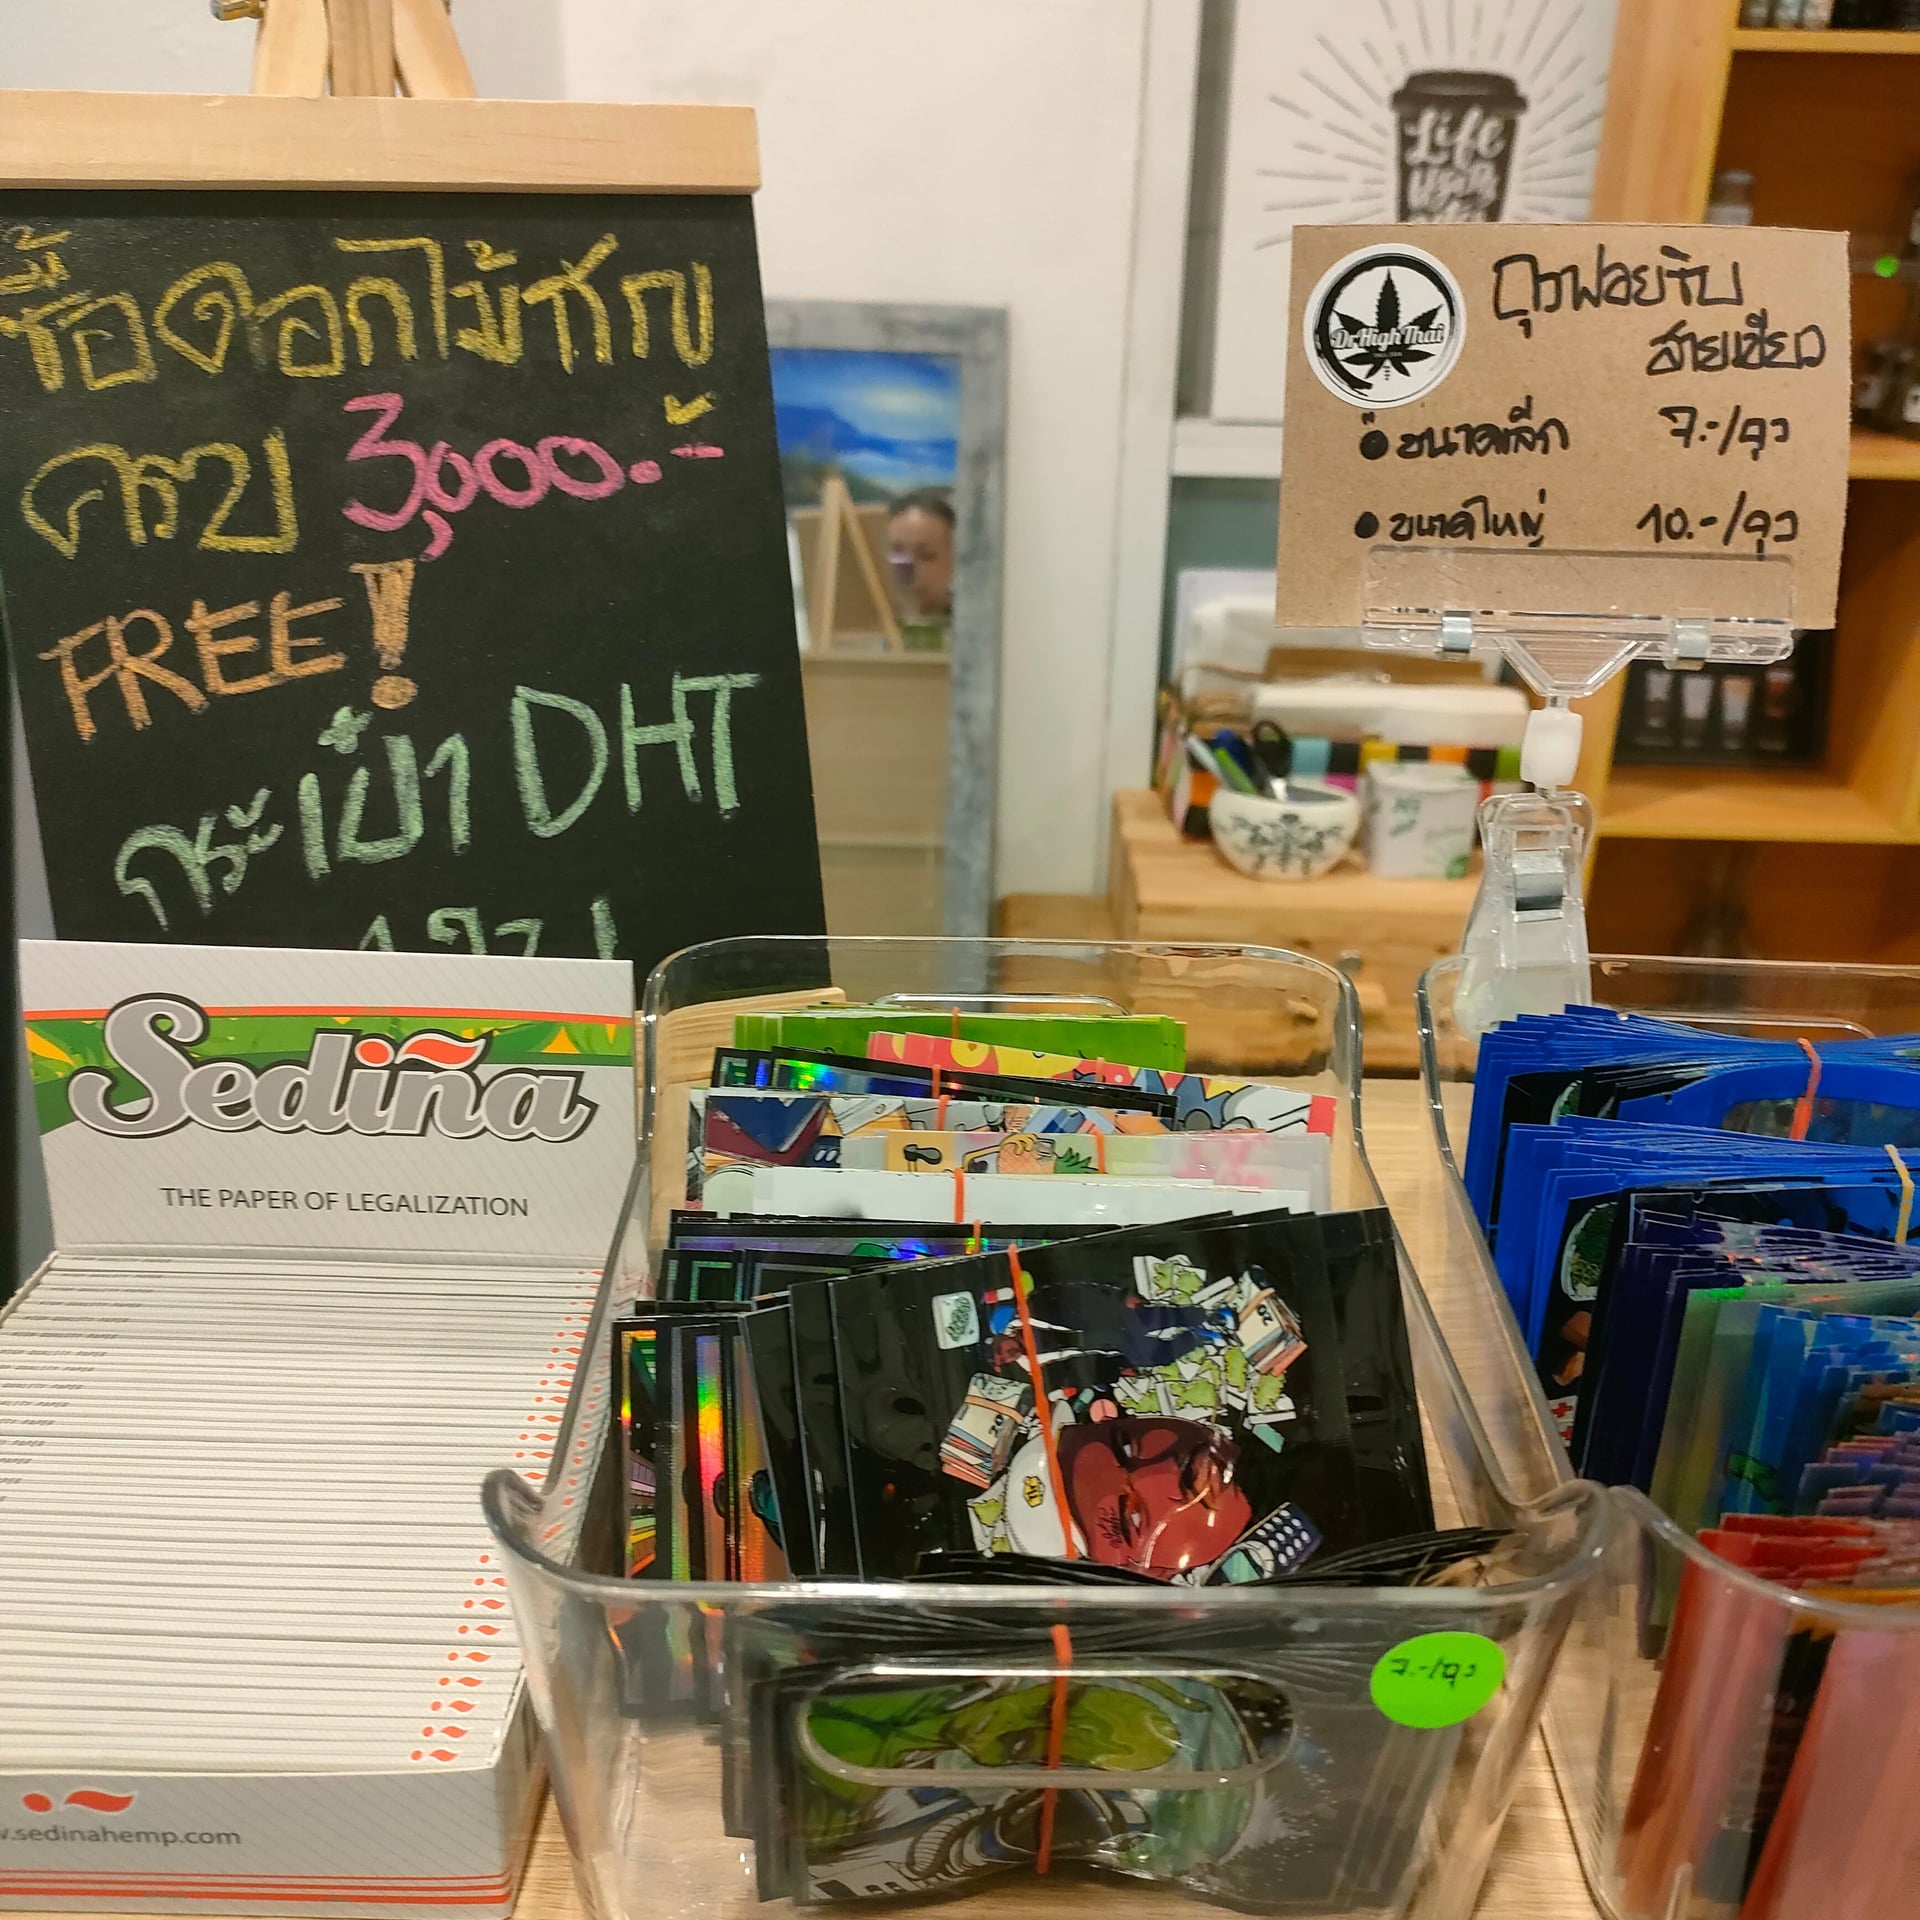 ซื้อดอกไม้ชาญ
ครบ 3,000.-
FREE!
กระเป๋า DHT
1 ใบ!
Life
DrHighThai
ถุงฟอยซิป
สายเขียว
ขนาดเล็ก 7.-/ถุง
ขนาดใหญ่ 10.-/ถุง
Sediña
THE PAPER OF LEGALIZATION
.sedinahemp.com
7.-/ถุง